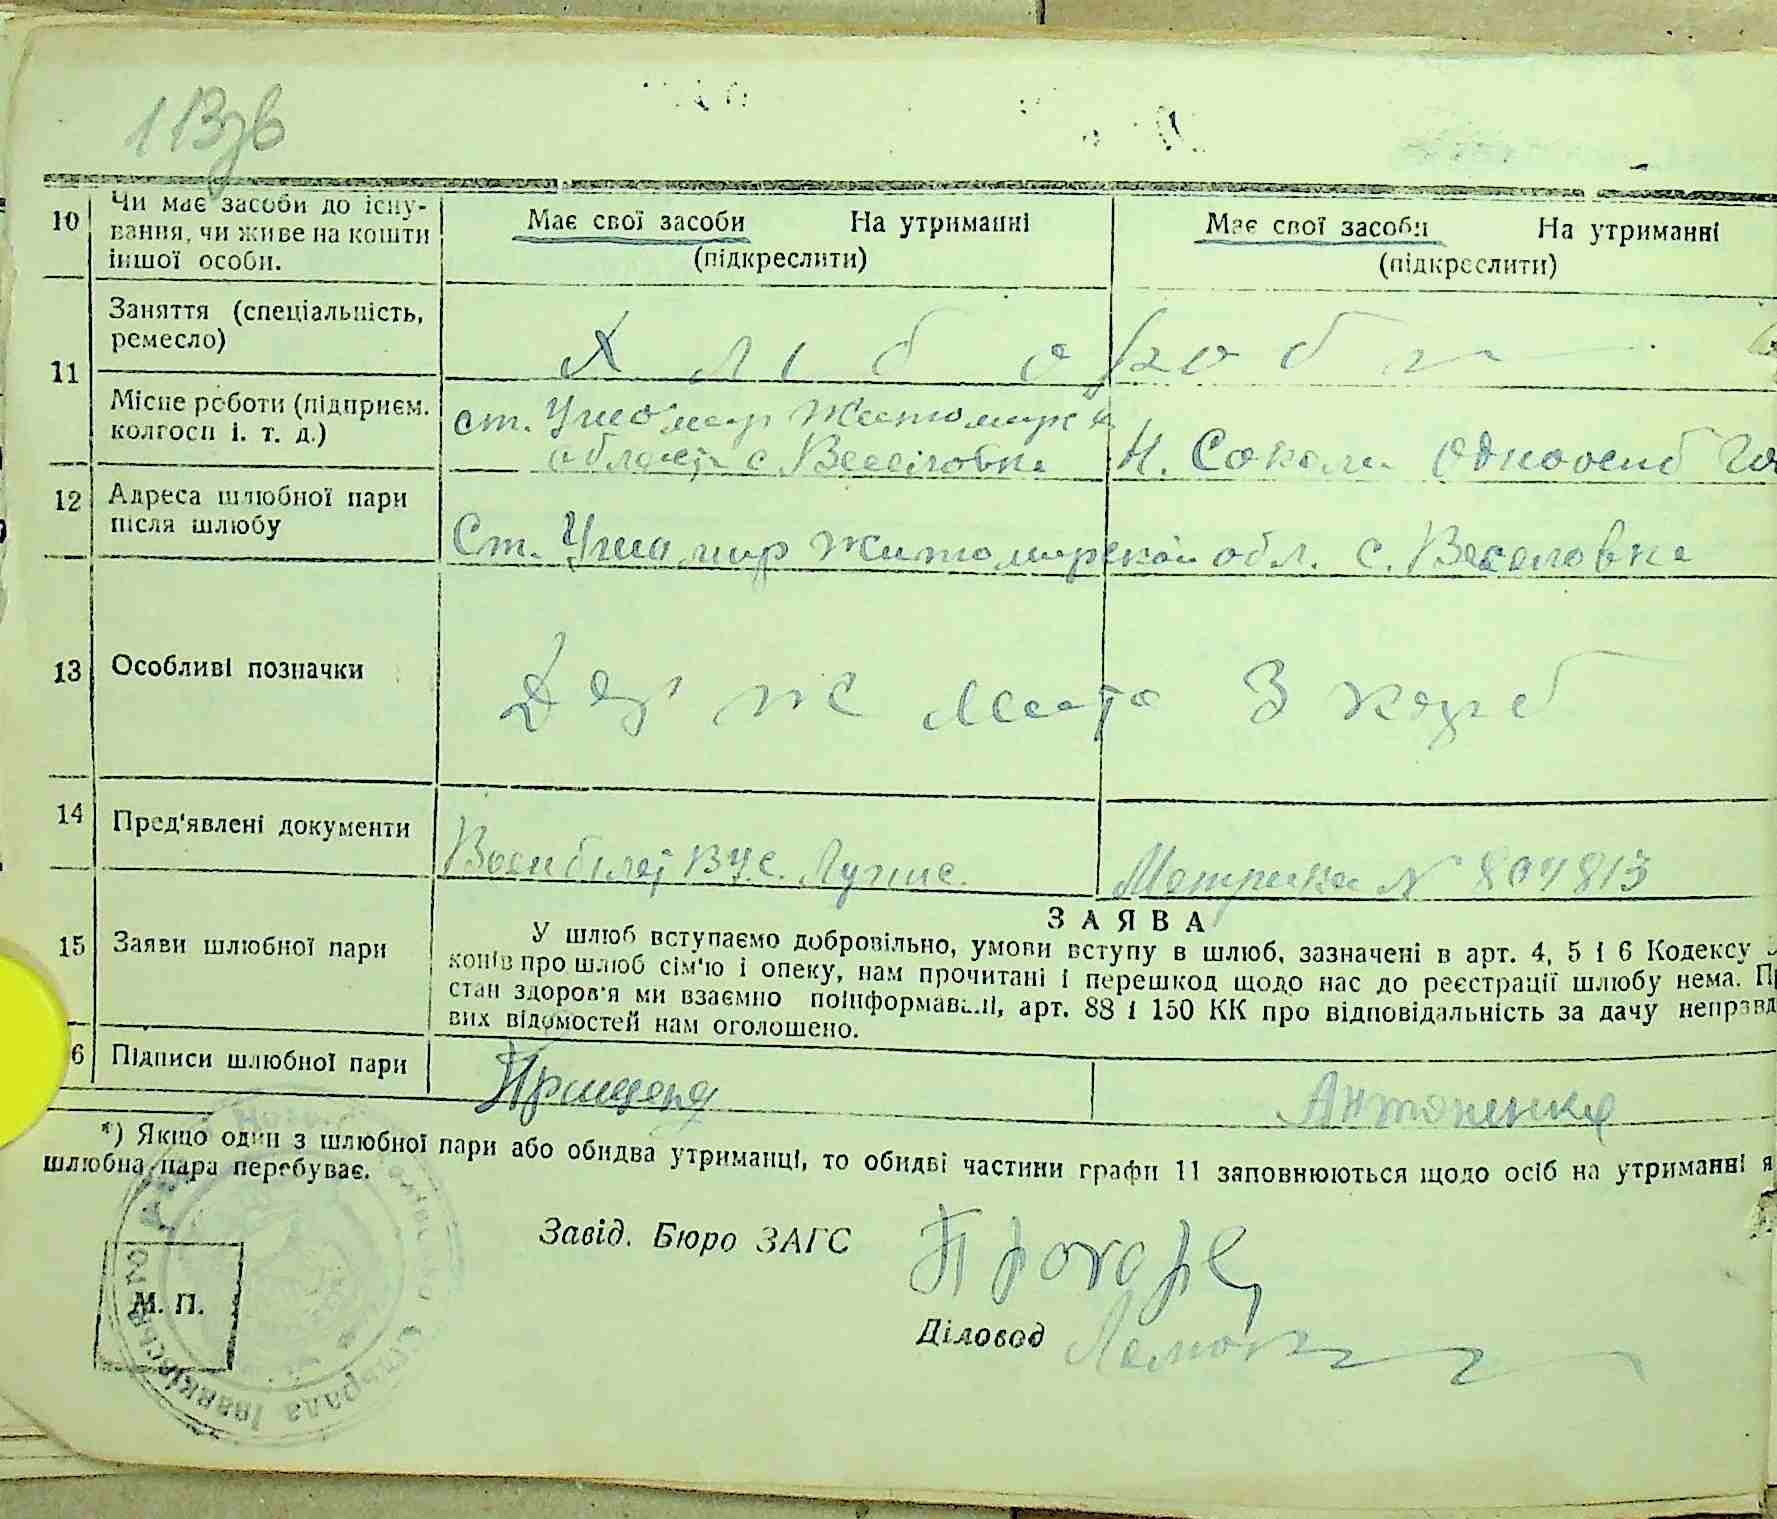 10 Чи має засоби до існу-
вання, чи живе на кошти
іншої особи.
Має свої засоби На утриманні
(підкреслити)
Має свої засоби На утриманні
(підкреслити)
11 Заняття (спеціальність,
ремесло)
Хлібороби
Місце роботи (підприєм.
колгосп і. т. д.)
ст. Ушомир Житомирск
область с. Веселовка
Н. Соколи одноосіб
12 Адреса шлюбної пари
після шлюбу
Ст. Ушомир Житомирской обл. с. Веселовка
13 Особливі позначки
Держ мито 3 карб
14 Пред'явлені документи
Военбілет ВУС.
Метрика N 804813
15 Заяви шлюбної пари
ЗАЯВА
У шлюб вступаємо добровільно, умови вступу в шлюб, зазначені в арт. 4, 5 і 6 Кодексу
конів про шлюб сім'ю і опеку, нам прочитані і перешкод щодо нас до реєстрації шлюбу нема. П
стан здоров'я ми взаємно поінформавані, арт. 88 і 150 КК про відповідальність за дачу неправд
вих відомостей нам оголошено.
6 Підписи шлюбної пари
Антоненко
*) Якщо один з шлюбної пари або обидва утриманці, то обидві частини графи 11 заповнюються щодо осіб на утриманні я
шлюбна пара перебуває.
Завід. Бюро ЗАГС
Діловод
М. П.